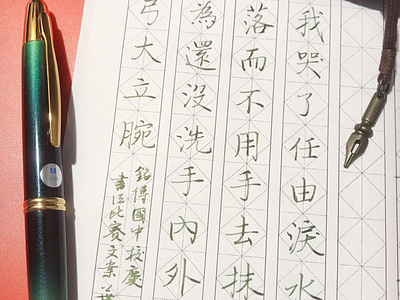 我哭了任由淚水
落而不用手去抹
為還沒洗手內外
弓大立腕
銘傳國中校慶
書法比賽文案
M